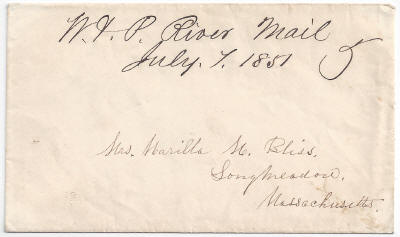 N. & P. River Mail 5
July. 7. 1851
Mrs. Marilla M. Bliss.
Longmeadow.
Massachusetts.